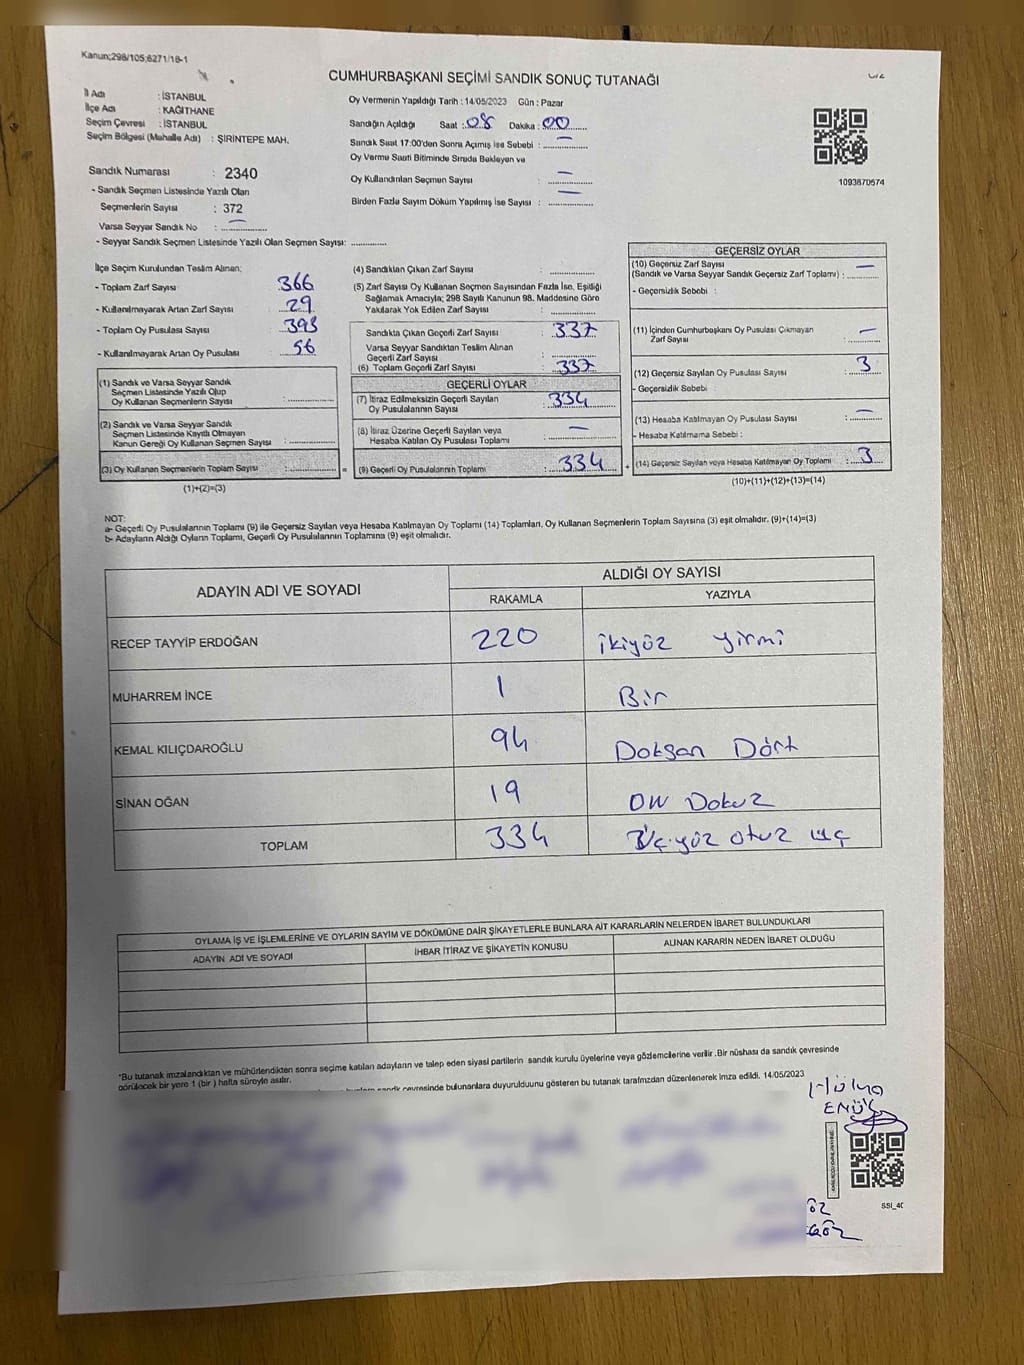 Kanun;298/105;6271/18-1
CUMHURBAŞKANI SEÇİMİ SANDIK SONUÇ TUTANAĞI
İl Adı : İSTANBUL
İlçe Adı : KAĞITHANE
Seçim Çevresi : İSTANBUL
Seçim Bölgesi (Mahalle Adı) : ŞİRİNTEPE MAH.
Sandık Numarası : 2340
- Sandık Seçmen Listesinde Yazılı Olan
Seçmenlerin Sayısı : 372
Varsa Seyyar Sandık No : —
- Seyyar Sandık Seçmen Listesinde Yazılı Olan Seçmen Sayısı: ..............
Oy Vermenin Yapıldığı Tarih : 14/05/2023 Gün : Pazar
Sandığın Açıldığı Saat : 08 Dakika : 00
Sandık Saat 17:00'den Sonra Açımış İse Sebebi : —
Oy Verme Saati Bitiminde Sırada Bekleyen ve
Oy Kullandırılan Seçmen Sayısı : —
Birden Fazla Sayım Döküm Yapılmış İse Sayısı : —
1093870574
İlçe Seçim Kurulundan Teslim Alınan;
- Toplam Zarf Sayısı : 366
- Kullanılmayarak Artan Zarf Sayısı : 29
- Toplam Oy Pusulası Sayısı : 393
- Kullanılmayarak Artan Oy Pusulası : 56
(1) Sandık ve Varsa Seyyar Sandık
Seçmen Listesinde Yazılı Olup
Oy Kullanan Seçmenlerin Sayısı : ..............
(2) Sandık ve Varsa Seyyar Sandık
Seçmen Listesinde Kayıtlı Olmayan
Kanun Gereği Oy Kullanan Seçmen Sayısı : ..............
(3) Oy Kullanan Seçmenlerin Toplam Sayısı : .............. =
(1)+(2)=(3)
(4) Sandıktan Çıkan Zarf Sayısı : ..............
(5) Zarf Sayısı Oy Kullanan Seçmen Sayısından Fazla İse, Eşitliği
Sağlamak Amacıyla; 298 Sayılı Kanunun 98. Maddesine Göre
Yakılarak Yok Edilen Zarf Sayısı : ..............
Sandıkta Çıkan Geçerli Zarf Sayısı : 337
Varsa Seyyar Sandıktan Teslim Alınan
Geçerli Zarf Sayısı : ..............
(6) Toplam Geçerli Zarf Sayısı : 337
GEÇERLİ OYLAR
(7) İtiraz Edilmeksizin Geçerli Sayılan
Oy Pusulalarının Sayısı : 334
(8) İtiraz Üzerine Geçerli Sayılan veya
Hesaba Katılan Oy Pusulası Toplamı : —
(9) Geçerli Oy Pusulalarının Toplamı : 334 +
GEÇERSİZ OYLAR
(10) Geçersiz Zarf Sayısı
(Sandık ve Varsa Seyyar Sandık Geçersiz Zarf Toplamı) : —
- Geçersizlik Sebebi :
(11) İçinden Cumhurbaşkanı Oy Pusulası Çıkmayan
Zarf Sayısı : —
(12) Geçersiz Sayılan Oy Pusulası Sayısı : 3
- Geçersizlik Sebebi :
(13) Hesaba Katılmayan Oy Pusulası Sayısı : —
- Hesaba Katılmama Sebebi :
(14) Geçersiz Sayılan veya Hesaba Katılmayan Oy Toplamı : 3
(10)+(11)+(12)+(13)=(14)
NOT:
a- Geçerli Oy Pusulalarının Toplamı (9) ile Geçersiz Sayılan veya Hesaba Katılmayan Oy Toplamı (14) Toplamları, Oy Kullanan Seçmenlerin Toplam Sayısına (3) eşit olmalıdır. (9)+(14)=(3)
b- Adayların Aldığı Oyların Toplamı, Geçerli Oy Pusulalarının Toplamına (9) eşit olmalıdır.
ADAYIN ADI VE SOYADI ALDIĞI OY SAYISI
RAKAMLA YAZIYLA
RECEP TAYYİP ERDOĞAN 220 ikiyüz yirmi
MUHARREM İNCE 1 Bir
KEMAL KILIÇDAROĞLU 94 Doksan Dört
SİNAN OĞAN 19 ON Dokuz
TOPLAM 334 Üçyüz otuz üç
OYLAMA İŞ VE İŞLEMLERİNE VE OYLARIN SAYIM VE DÖKÜMÜNE DAİR ŞİKAYETLERLE BUNLARA AİT KARARLARIN NELERDEN İBARET BULUNDUKLARI
ADAYIN ADI VE SOYADI İHBAR İTİRAZ VE ŞİKAYETİN KONUSU ALINAN KARARIN NEDEN İBARET OLDUĞU
*Bu tutanak imzalandıktan ve mühürlendikten sonra seçime katılan adayların ve talep eden siyasi partilerin sandık kurulu üyelerine veya gözlemcilerine verilir .Bir nüshası da sandık çevresinde
görülecek bir yere 1 (bir ) hafta süreyle asılır.
sandık çevresinde bulunanlara duyurulduunu gösteren bu tutanak tarafımızdan düzenlenerek imza edildi. 14/05/2023
Hülya